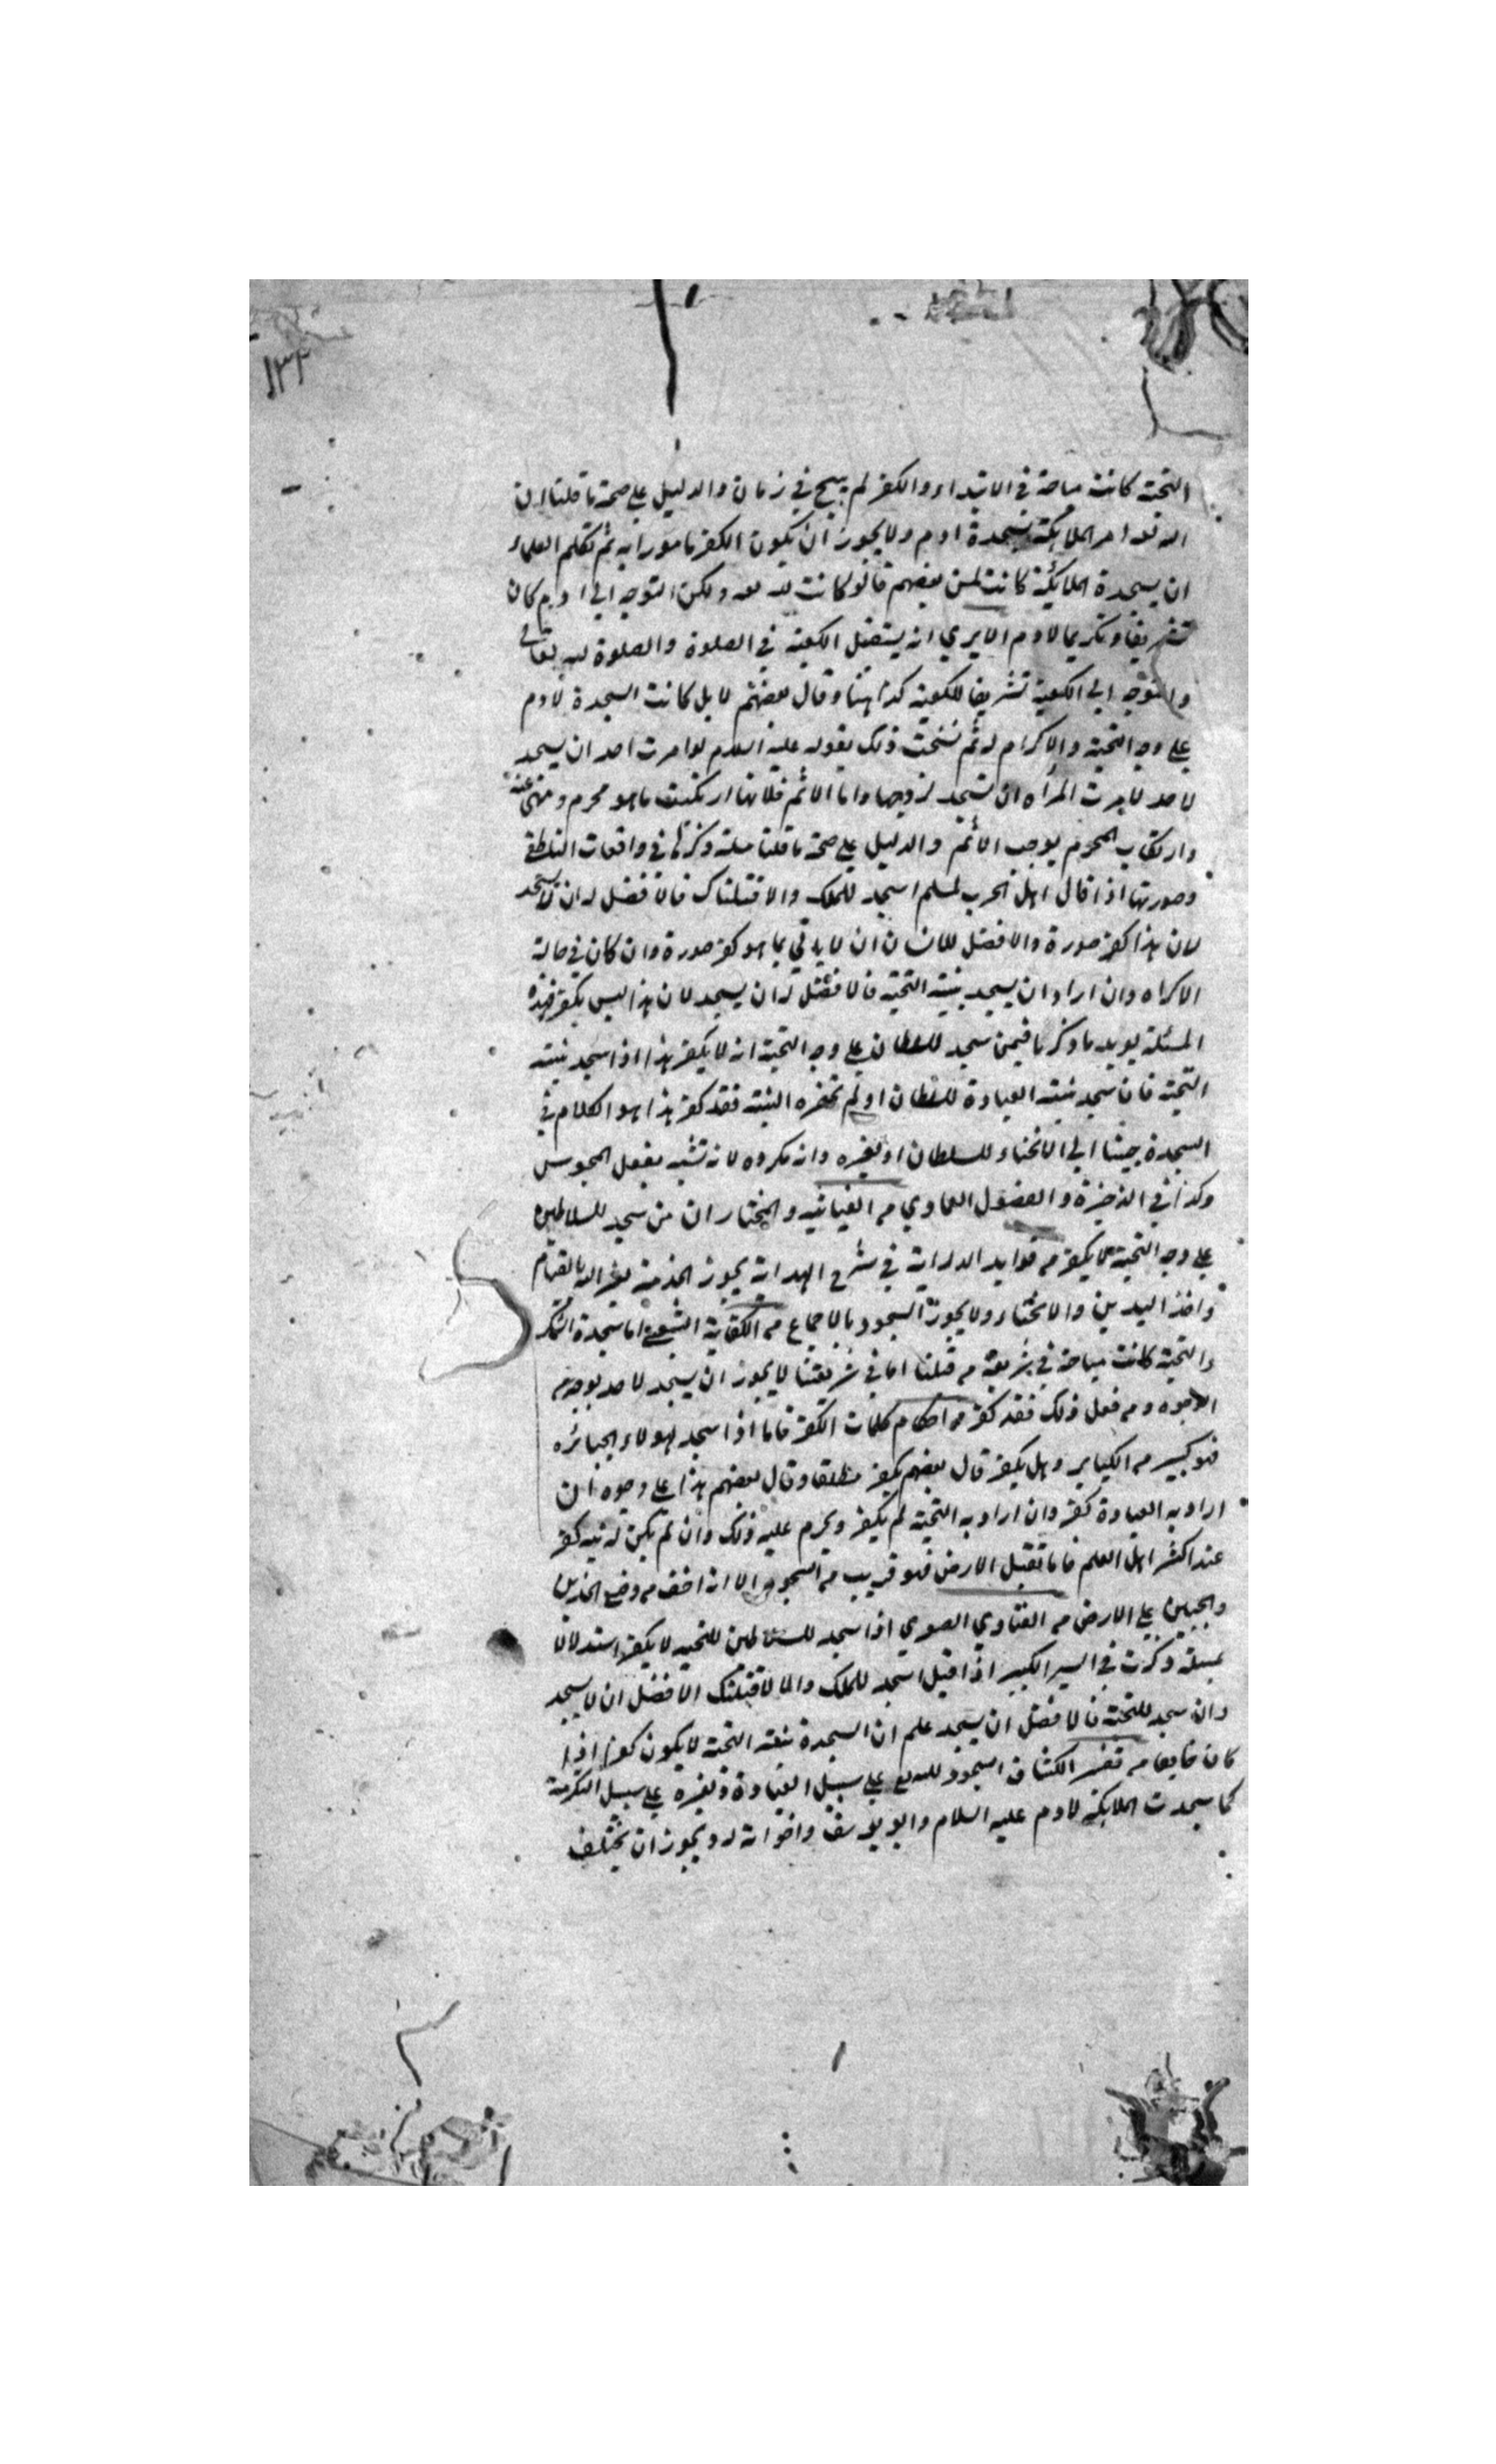 ١٣٢
التحية كانت مباحة في الابتداء والكفر لم يبح في زمان والدليل علي صحة ما قلنا ان
الله تعا امر الملايكة بسجدة ادم ولا يجوز ان يكون الكفر مامورا به ثم تكلم العلماء
ان سجدة الملايكة كانت لمن بعضهم قالو كانت لله تعا ولكن التوجه الي ادم كان
تشريفا وتكريما لادم الا يري انه يستقبل الكعبة في الصلوة والصلوة لله تعالي
والتوجه الي الكعبة تشريفا للكعبة كذا هنا وقال بعضهم لا بل كانت السجدة لادم
علي وجه التحية والاكرام له ثم نسخت ذلك بقوله عليه السلام لو امرت احد ان يسجد
لاحد لامرت المراه ان تسجد لزوجها واما الاثم فلانها ارتكبت ما هو محرم ومنهي عنه
وارتكاب المحرم يوجب الاثم والدليل علي صحة ما قلنا مسلة ذكرها في واقعات الناطفي
وصورتها اذا قال اهل الحرب لمسلم اسجد للملك والا قتلناك فالافضل له ان لا يسجد
لان هذا كفر صورة والافضل للانسان ان لا ياتي بما هو كفر صورة وان كان في حالة
الاكراه وان اراد ان يسجد بنية التحية فالافضل له ان يسجد لان هذا ليس بكفر فهذه
المسئلة يويد ما ذكرنا فيمن سجد للسلطان علي وجه التحية انه لا يكفر هذا اذا سجد بنية
التحية فان سجد بنية العبادة للسلطان او لم تحضره النية فقد كفر هذا هو الكلام في
السجدة جينا الي الانحناء للسلطان او لغيره وانه مكروه لانه تشبه بفعل المجوس
وكذا في الذخيرة والفصول العمادي من الغياثيه والمختار ان من سجد للسلاطين
علي وجه التحية لا يكفر من فوايد الدرايات في شرح الهداية يجوز الخدمة لغير الله بالقيام
واخذ اليدين والانحناء ولا يجوز السجود بالاجماع من الكفاية الشعبي اما سجدة الشكر
والتحية كانت مباحة في شريعة من قبلنا اما في شريعتنا لا يجوز ان يسجد لاحد بوجه من
الوجوه ومن فعل ذلك فقد كفر من احكام كلمات الكفر فاما اذا سجد لهولاء الجبائره
فهو كبير من الكباير وهل يكفر قال بعضهم يكفر مطلقا وقال بعضهم هذا علي وجوه ان
اراد به العبادة كفر وان اراد به التحية لم يكفر ويحرم عليه ذلك وان لم يكن له نيه كفر
عند اكثر اهل العلم فاما تقبيل الارض فهو قريب من السجود الا انه اخف من وضع الخدين
والجبين علي الارض من الفتاوي الصوي اذا سجد للسلاطين للتحيه لا يكفر استدلالا
بمسلة ذكرت في السير الكبير اذا قيل اسجد للملك والا لاقتلنك الافضل ان لا يسجد
وان سجد للتحية فالافضل ان يسجد علم ان السجدة بنية التحية لا يكون كفرا اذا
كان خايفا من تفسير الكشاف السجود لله تع علي سبيل العبادة ولغيره علي سبيل التكرمة
كما سجدت الملايكة لادم عليه السلام وابو يوسف واخوانه له ويجوز ان يختلف